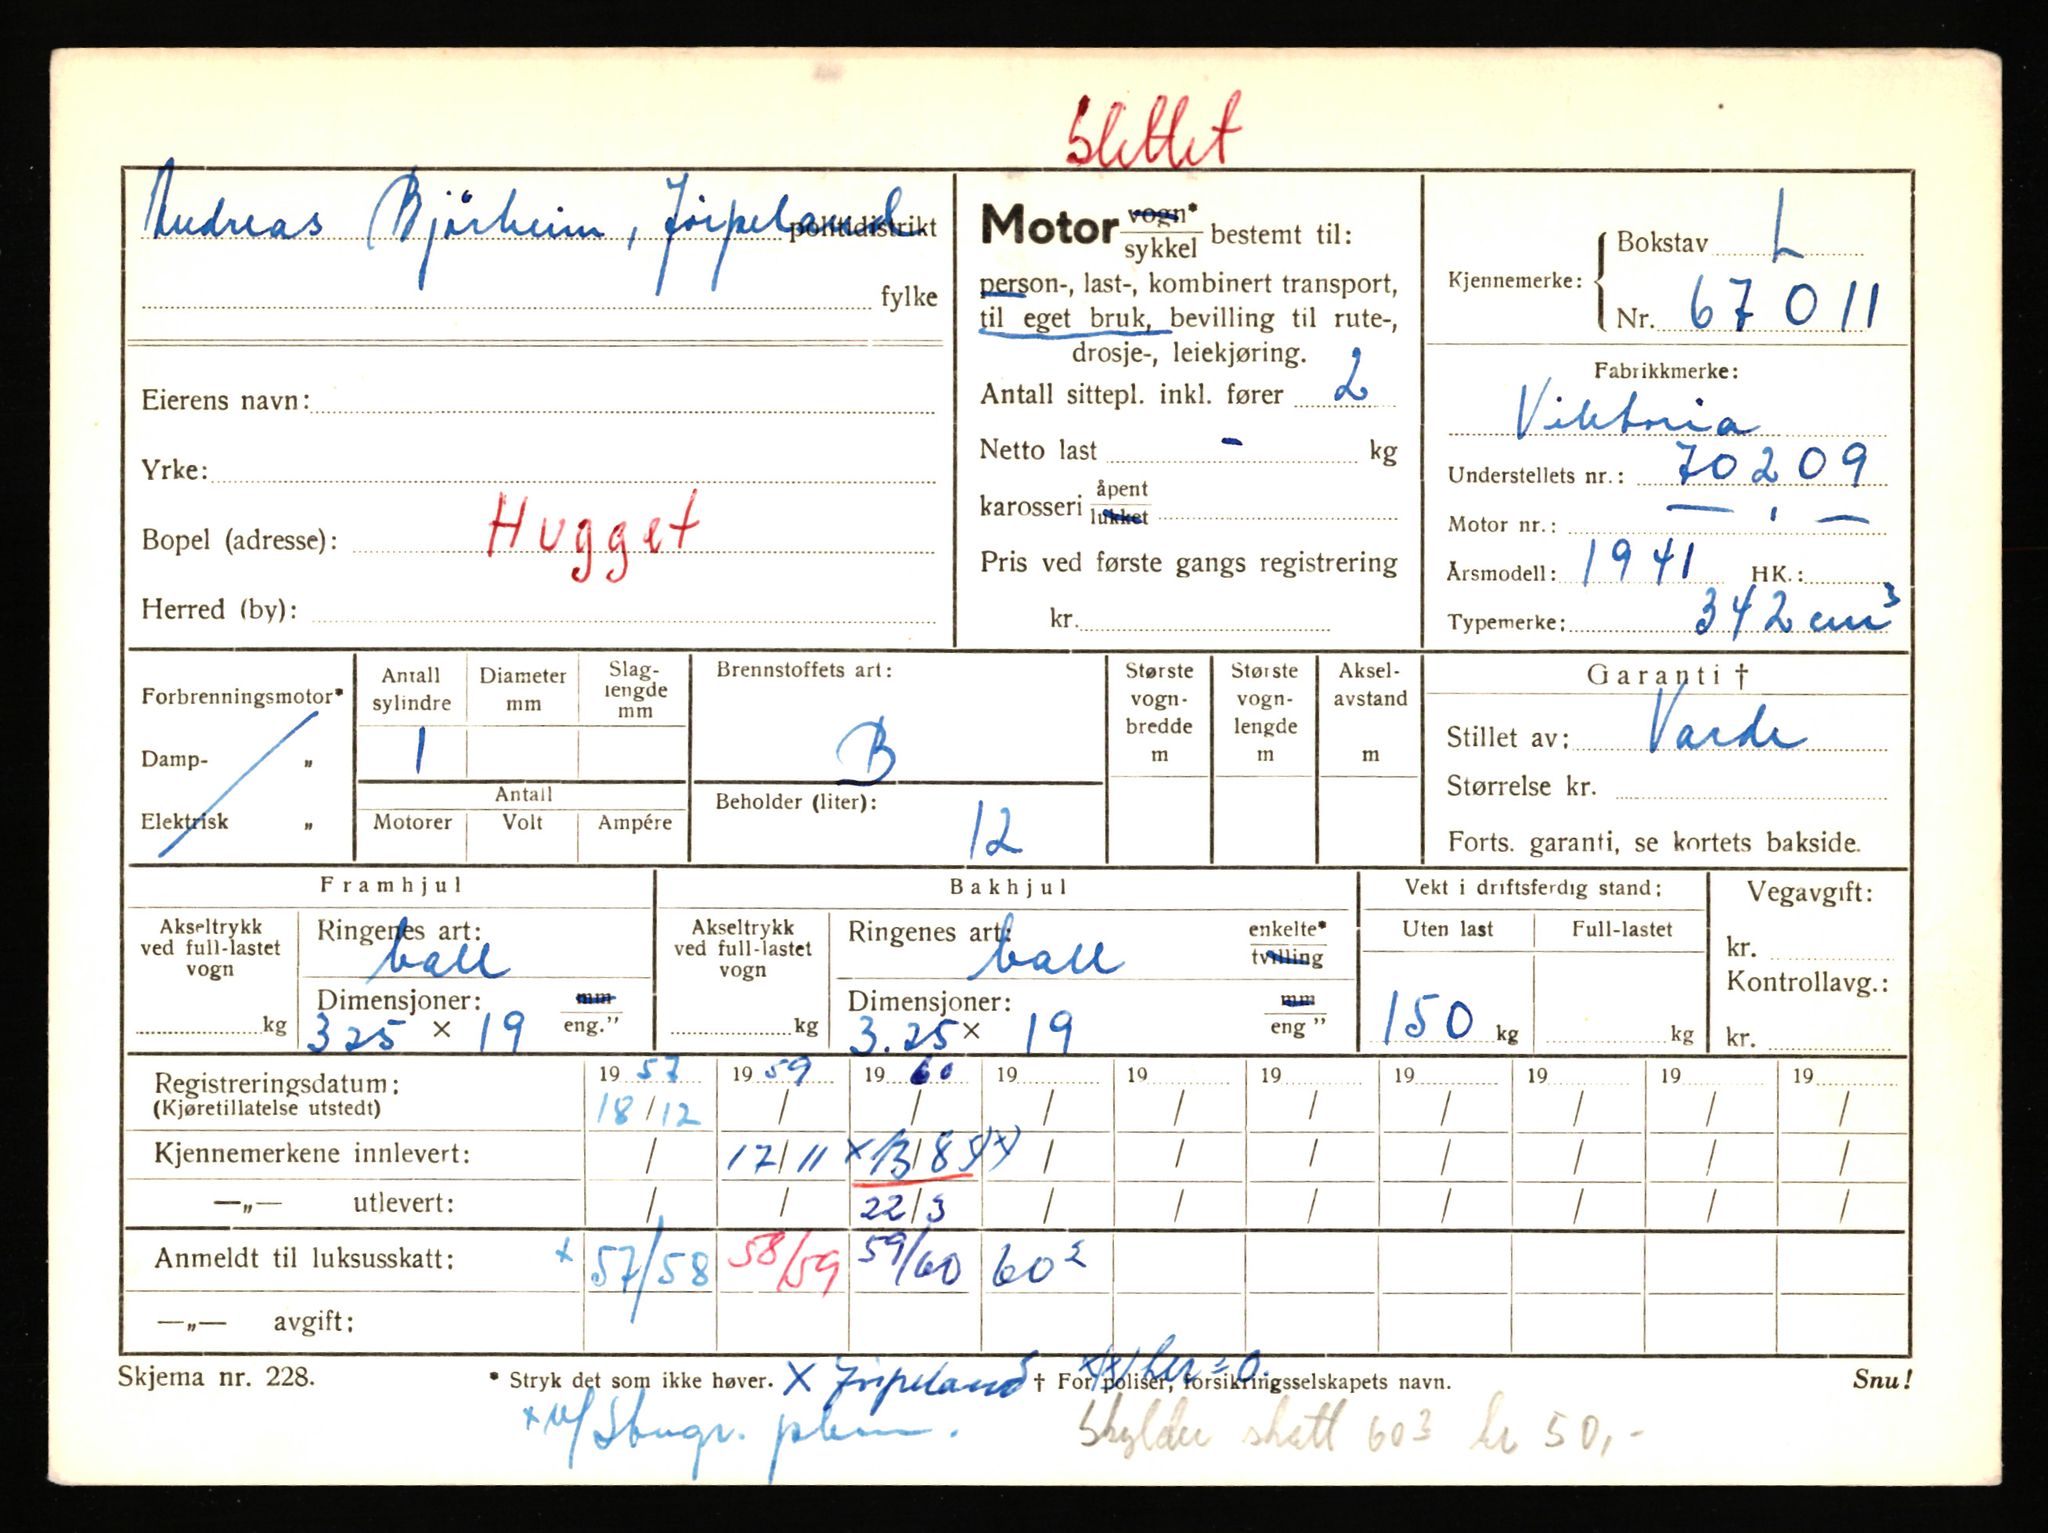 Slettet
Andreas Bjørheim, Jørpeland
politidistrikt
fylke
Eierens navn:
Yrke:
Bopel (adresse): Hugget
Herred (by):
Motor vogn* / sykkel bestemt til:
person-, last-, kombinert transport,
til eget bruk, bevilling til rute-,
drosje-, leiekjøring.
Antall sittepl. inkl. fører 2
Netto last - kg
karosseri åpent / lukket
Pris ved første gangs registrering
kr.
Kjennemerke: { Bokstav L
Nr. 67011
Fabrikkmerke:
Viktoria
Understellets nr.: 70209
Motor nr.: — " —
Årsmodell: 1941 HK.:
Typemerke: 342 cm³
Forbrenningsmotor*
Damp- „
Elektrisk „
Antall sylindre
1
Diameter mm
Slag-lengde mm
Antall
Motorer Volt Ampére
Brennstoffets art:
B
Beholder (liter):
12
Største vogn-bredde m
Største vogn-lengde m
Aksel-avstand m
Garanti †
Stillet av: Varde
Størrelse kr.
Forts. garanti, se kortets bakside.
Framhjul
Akseltrykk ved full-lastet vogn
kg
Ringenes art:
ball
Dimensjoner: mm / eng."
325 × 19
Bakhjul
Akseltrykk ved full-lastet vogn
kg
Ringenes art: enkelte* / tvilling
ball
Dimensjoner: mm / eng "
3.25 × 19
Vekt i driftsferdig stand:
Uten last Full-lastet
150 kg kg
Vegavgift:
kr.
Kontrollavg.:
kr.
Registreringsdatum: 1957 1959 1960 19 19 19 19 19 19 19
(Kjøretillatelse utstedt) 18/12 / / / / / / / / /
Kjennemerkene innlevert: / 17/11 x 13/8 x/x) / / / / / / /
—„— utlevert: / / 22/3 / / / / / / /
Anmeldt til luksusskatt: x 57/58 58/59 59/60 60²
—„— avgift:
Skjema nr. 228.
* Stryk det som ikke høver. X Jørpeland † For poliser, forsikringsselskapets navn.
x/x) her = 0.
Snu!
Skylder skatt 60³ kr 50,-